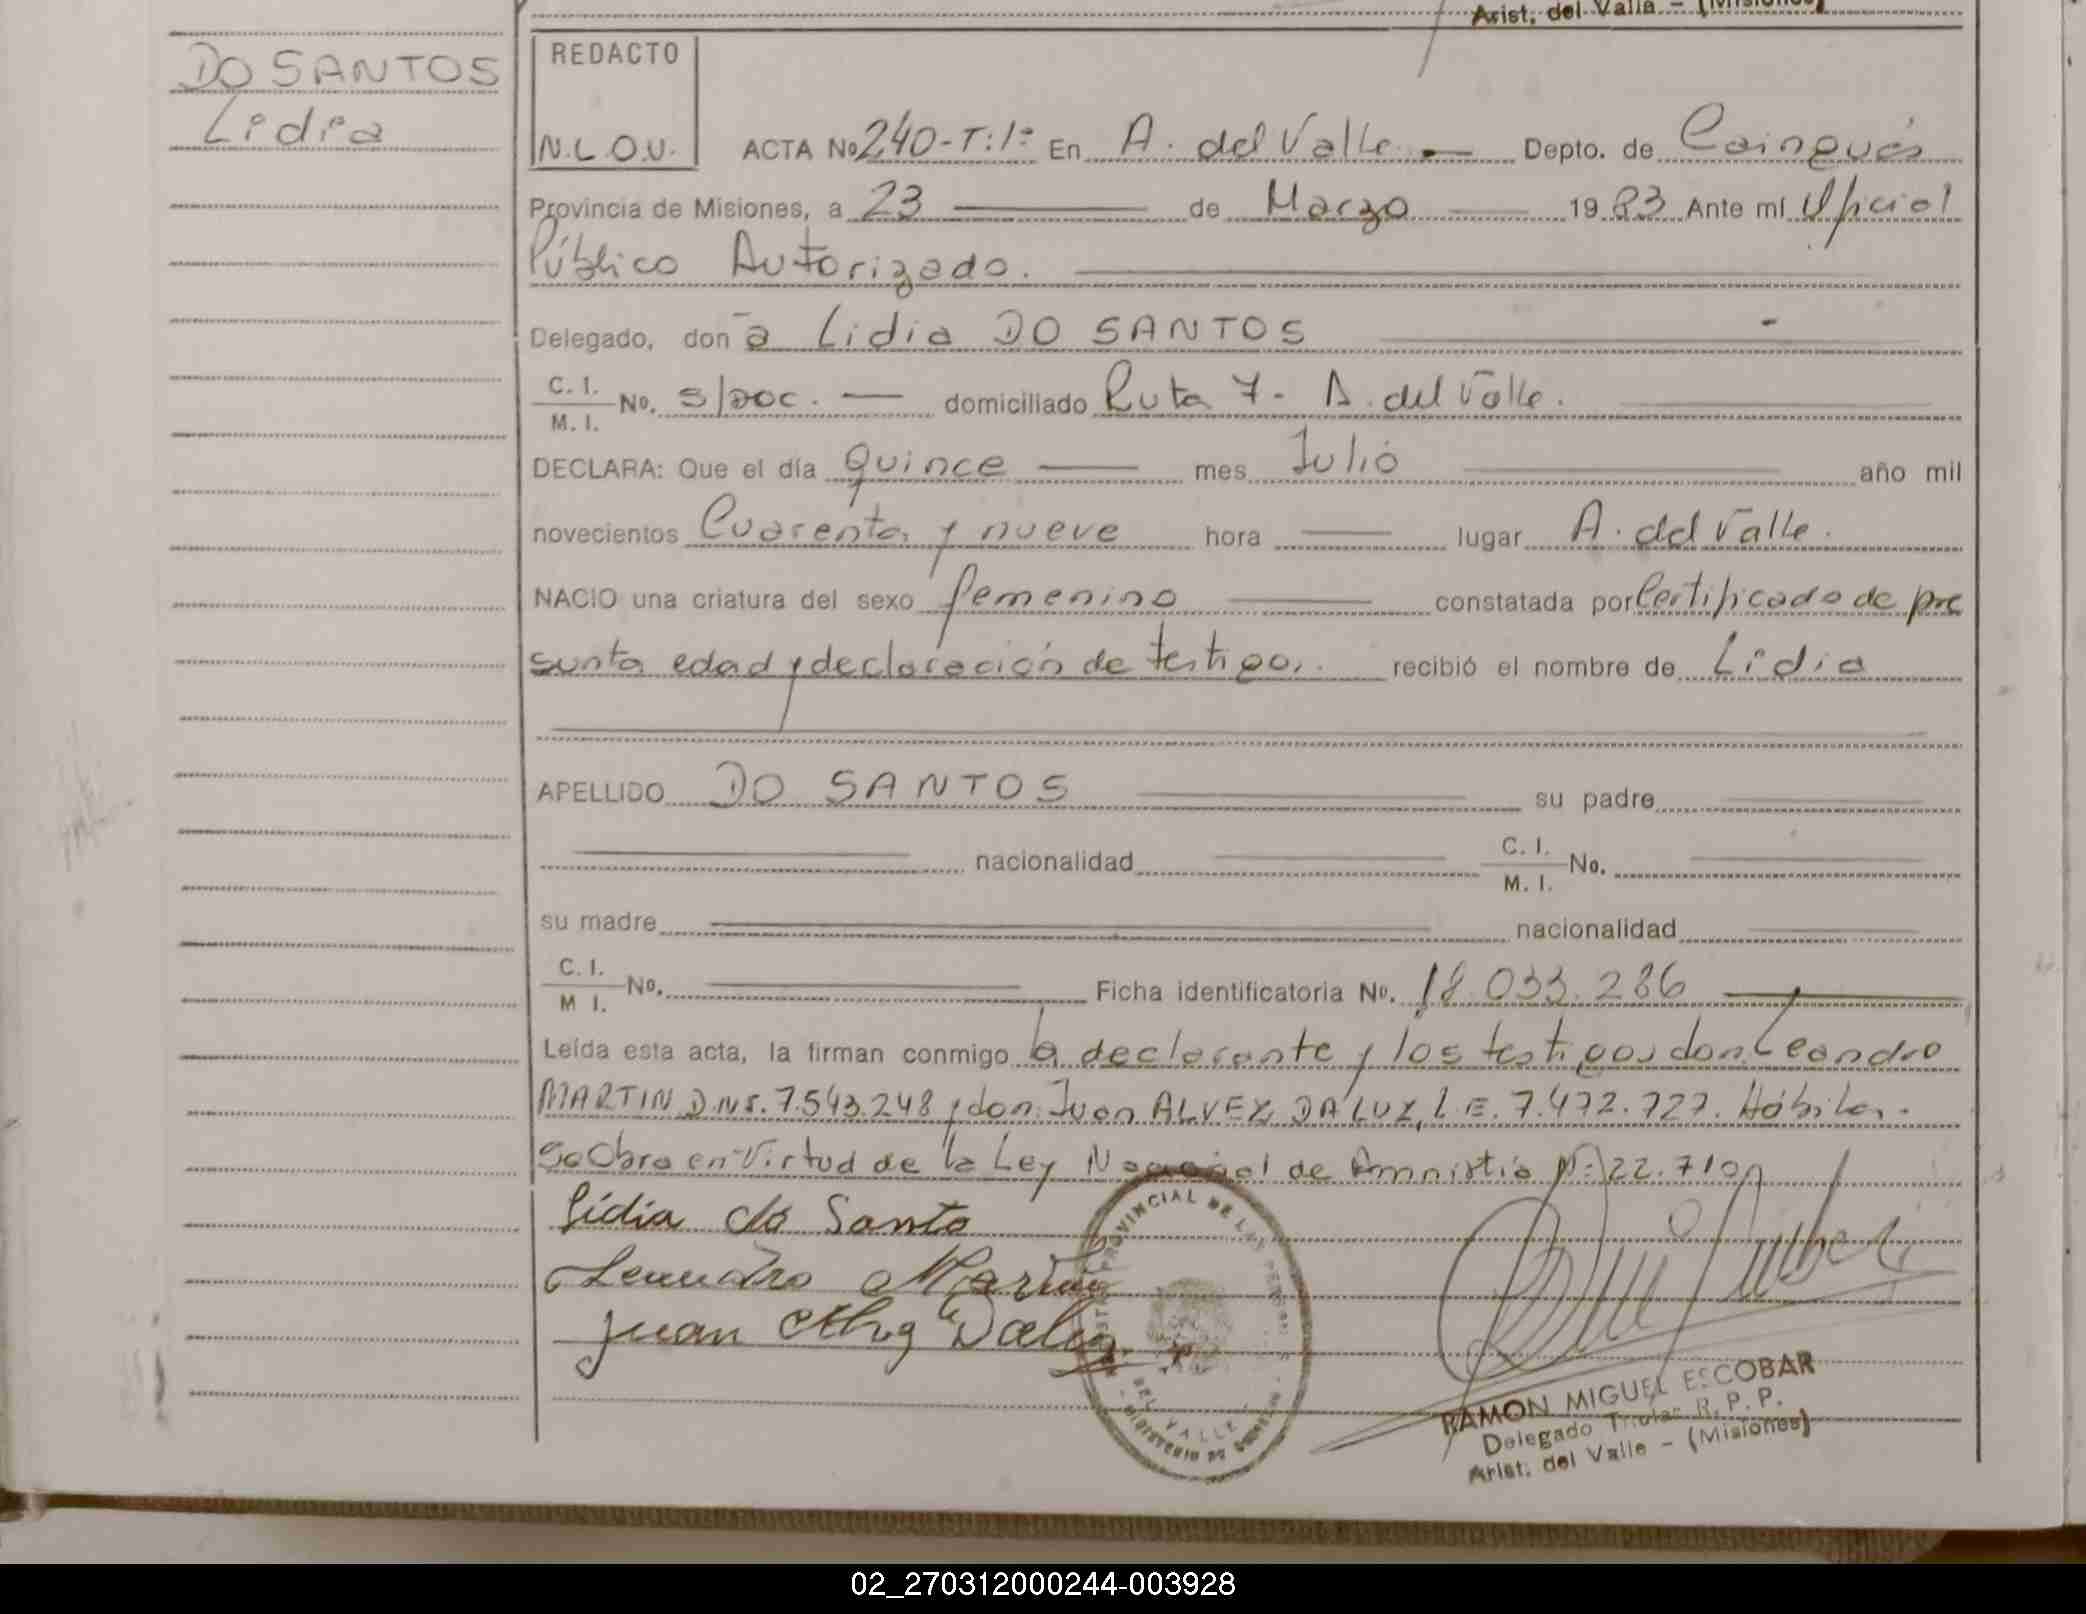 Arist. del Valle - (Misiones)
DO SANTOS
Lidia
REDACTO
N.L.O.V.
ACTA No 240-T:1º En A. del Valle. — Depto. de Cainguás
Provincia de Misiones, a 23 — de Marzo — 1983 Ante mí Oficial
Público Autorizado.
Delegado, don ã Lidia DO SANTOS
C. I. / M. I. No. s/doc. — domiciliado Ruta 7 - A. del Valle.
DECLARA: Que el día quince — mes Julio — año mil
novecientos Cuarenta y nueve hora — lugar A. del Valle.
NACIO una criatura del sexo femenino — constatada por Certificado de pre
sunta edad y declaración de testigos. recibió el nombre de Lidia
APELLIDO DO SANTOS — su padre —
— nacionalidad — C. I. / M. I. No. —
su madre — nacionalidad —
C. I. / M I. No. — Ficha identificatoria No. 18.033.286 —
Leída esta acta, la firman conmigo la declarante y los testigos don Leandro
MARTIN D.N.I. 7.543.248 y don: Juan ALVEZ DA LUZ, L.E. 7.472.727. Hábiles.
Se Obra en Virtud de la Ley Nacional de Amnistía Nº: 22.710
Lidia do Santo
Leandro Martin
Juan Dalus
PROVINCIAL DE LAS PERSONAS
DEL VALLE
MINISTERIO DE GOBIERNO
RAMON MIGUEL ESCOBAR
Delegado Titular R. P. P.
Arist. del Valle - (Misiones)
02_270312000244-003928